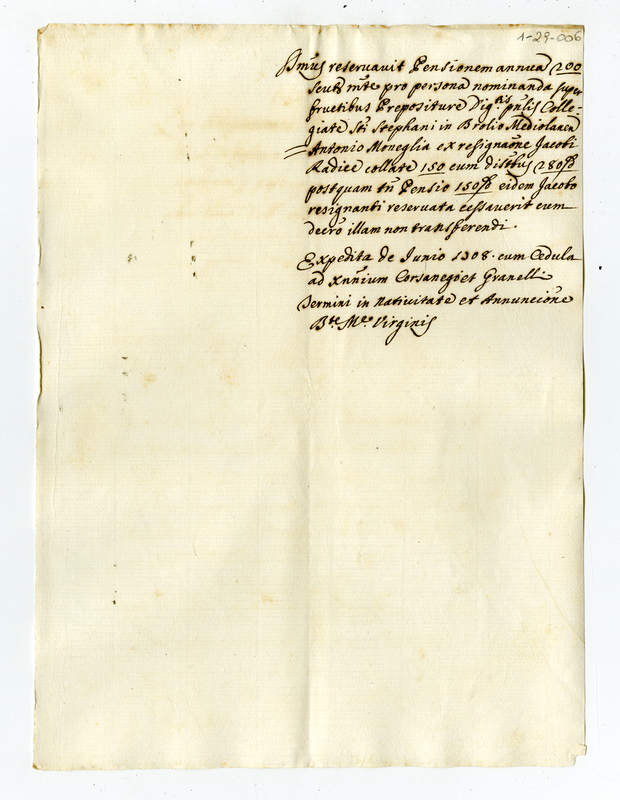 1-29-006
Smũs reservavit Pensionem annua 200
scut mte pro persona nominanda super
fructibus Prepositure Dig.tis pnlis Colle-
giate Sti Stephani in Brolio Mediolaen
Antonio Moneglia ex resignaõne Jacobi
Radice collate 150 cum distbus 280
postquam tñ Pensio 150 eidem Jacobo
resignanti reservata cessaverit cum
decro illam non transferendi.
Expedita de Junio 1708. cum Cedula
ad Corsanego et Granelli
Termini in Nativitate et Annuncione
Bte. Me. Virginis